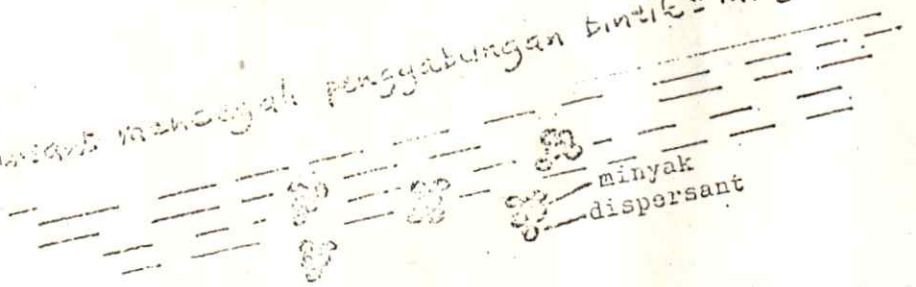 mencegah penggabungan bintik²
minyak
dispersant